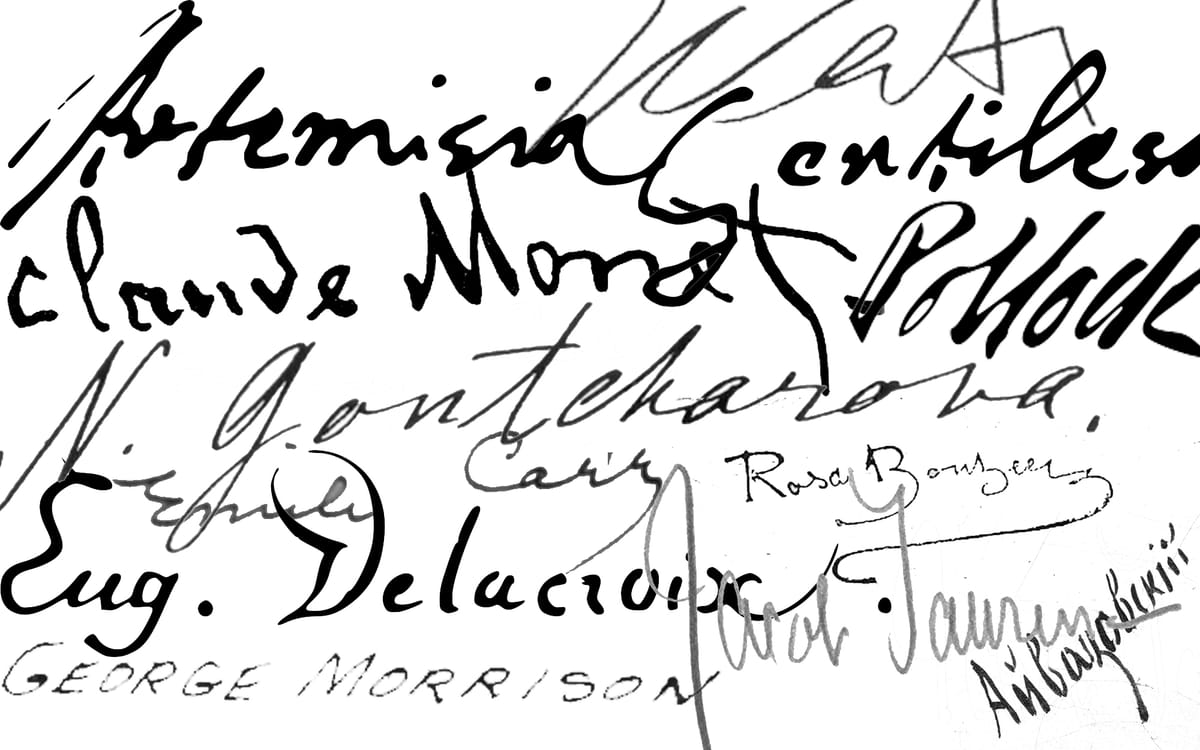 Artemisia Gentiles
Claude Monet
Pollock
N. Gontcharova.
Emily Carr
Rosa Bonheur
Eug. Delacroix.
Jacob Lawrence
Айвазовскій
GEORGE MORRISON